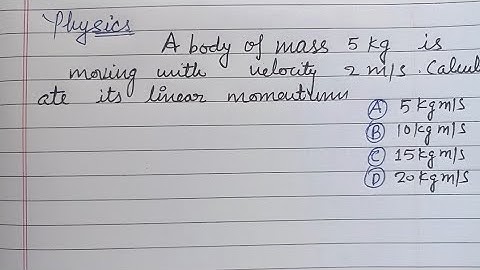 Physics
A body of mass 5 kg is
moving with velocity 2 m/s. Calcul
ate its linear momentum
A 5 kg m/s
B 10 kg m/s
C 15 kg m/s
D 20 kg m/s